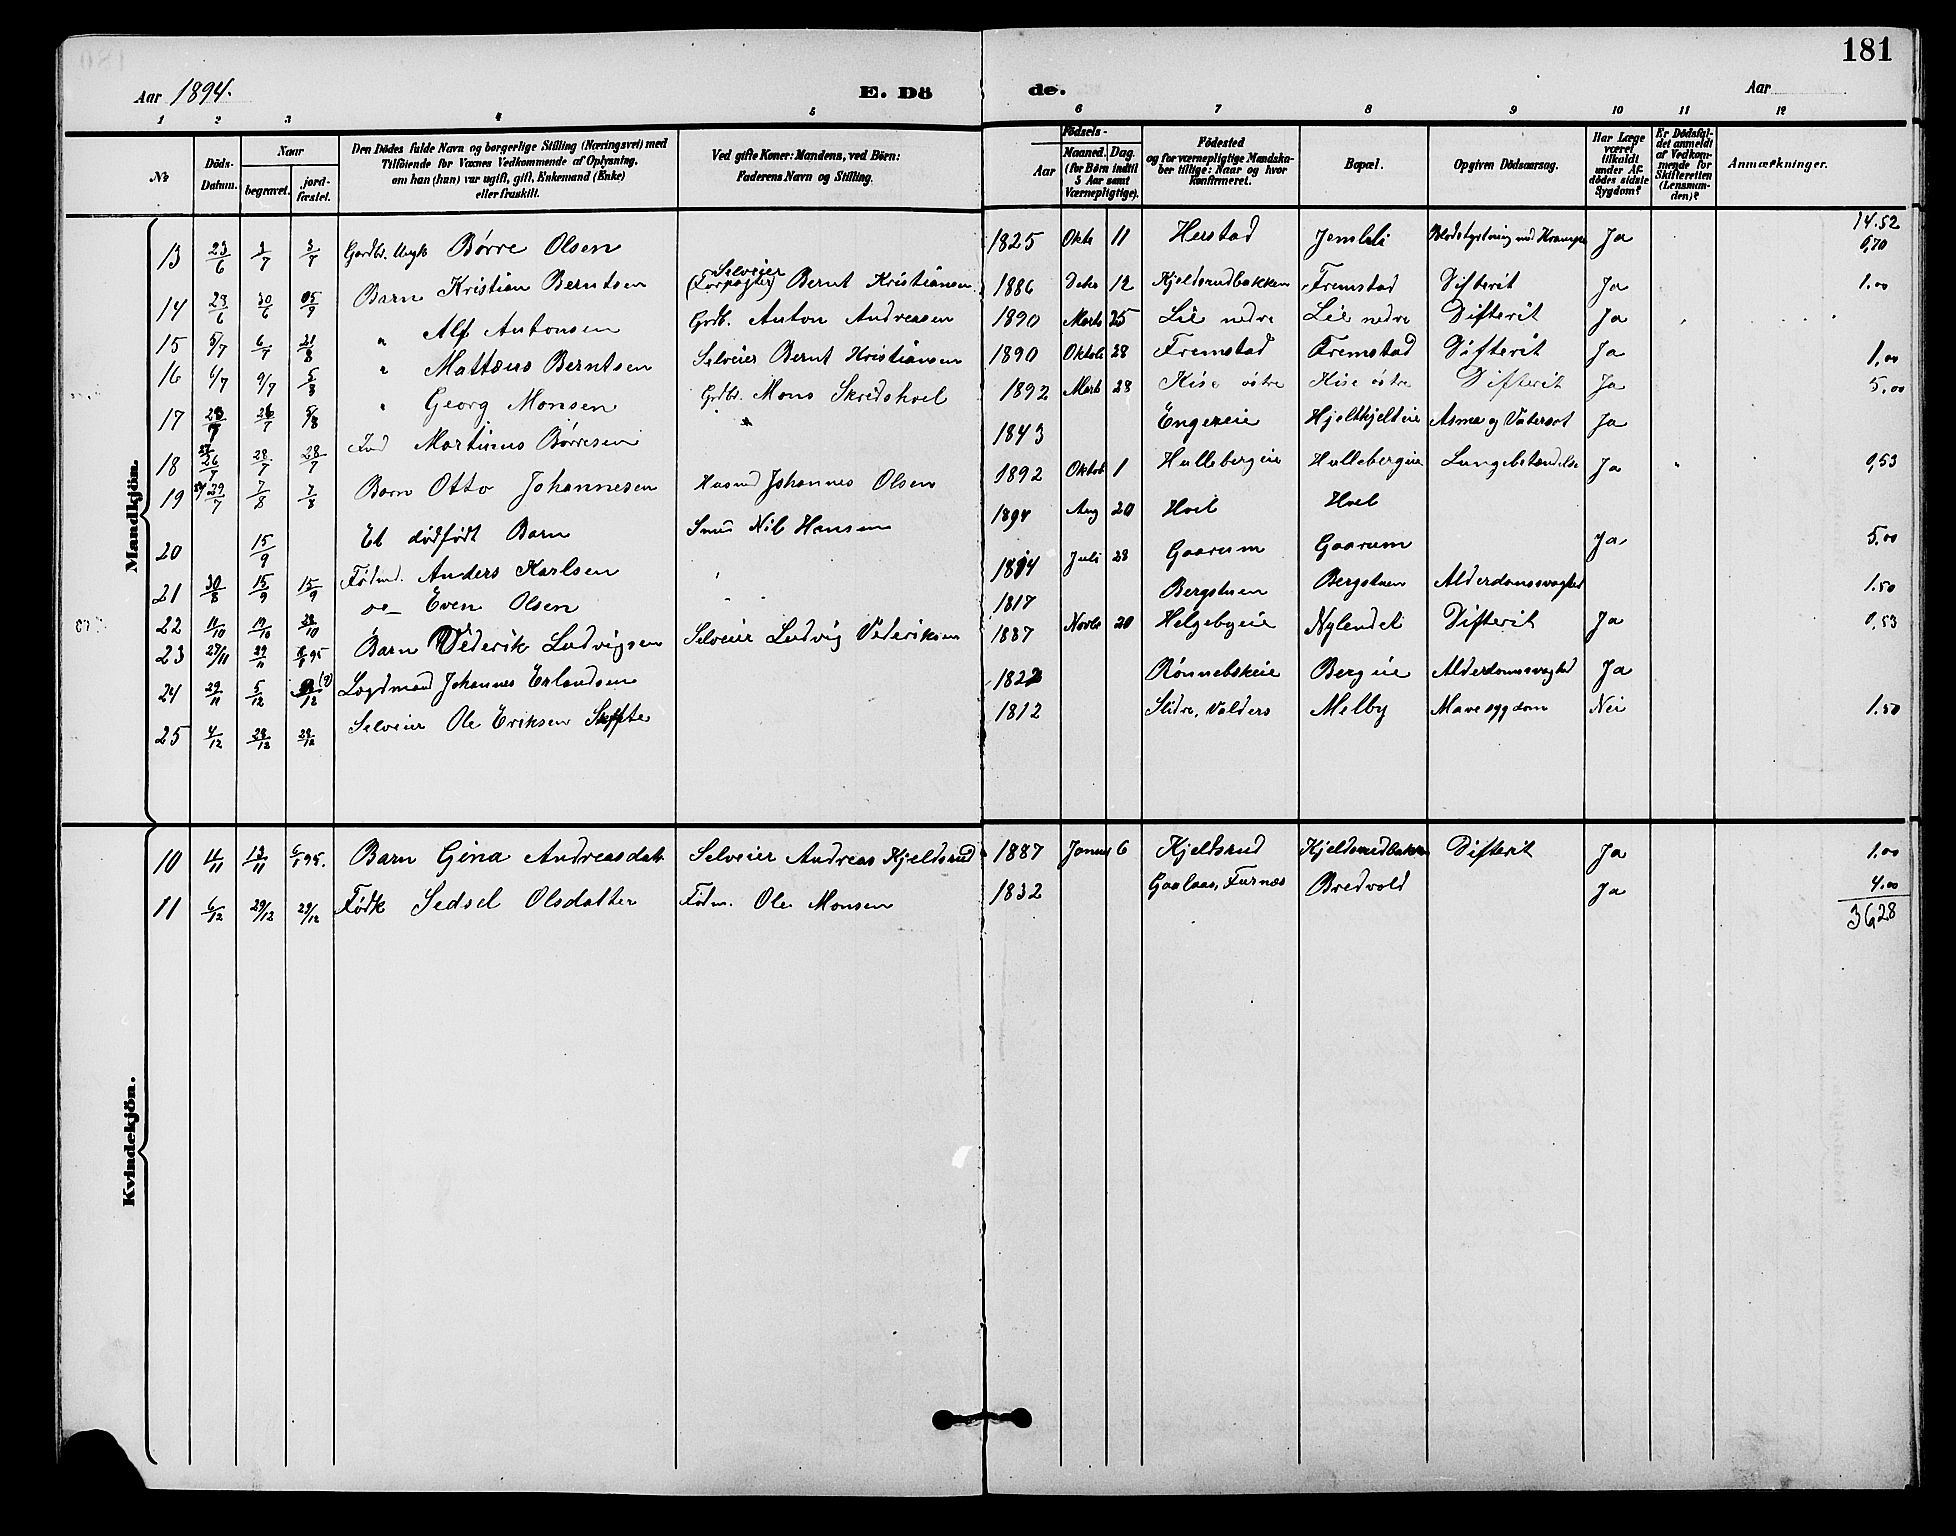 181
Aar 1894.
E. Dö de.
Aar
1 2 3 4 5 6 7 8 9 10 11 12
№ Döds-Datum. Naar begravet. jord-fæstet. Den Dödes fulde Navn og borgerlige Stilling (Næringsvei) med Tilföiende for Voxnes Vedkommende af Oplysning, om han (hun) var ugift, gift, Enkemand (Enke) eller fraskilt. Ved gifte Koner: Mandens, ved Börn: Faderens Navn og Stilling. Födsels- Aar Maaned. Dag. (for Börn indtil 5 Aar samt Værnepligtige). Födested og for værnepligtige Mandska-ber tillige: Naar og hvor Konfirmeret. Bopæl. Opgiven Dödsaarsag. Har Læge været tilkaldt under Af-dödes sidste Sygdom? Er Dödsfal-det anmeldt af Vedkom-mende for Skifteretten (Lensman-den)? Anmærkninger.
Mandkjön.
14.52
13 23/6 3/7 3/7 Børre Olsen 1825 Okts 11 Herstad Ja 0,70
14 23/6 30/6 Barn Kristian Berntsen Selveier (Forpagter) Bernt Kristiansen 1886 Debr 12 Kjeldsrudbakken Fremstad Difterit Ja 1.00
15 5/7 6/7 21/8 " Alf Antonsen Grdb. Anton Andreasen 1890 Marts 25 Lie nedre Lie nedre Difterit Ja
16 6/7 9/7 5/8 " Mattæus Berntsen Selveier Bernt Kristiansen 1890 Oktob 28 Fremstad Fremstad Difterit Ja 1,00
17 23/7 26/7 5/8 " Georg Monsen Grdbr. Mons Skredshoel 1892 Marts 28 Kise østre Kise østre Difterit Ja 5,00
18 26/7 28/7 28/7 Ind Martinus Børresen 1843 Engereie Asma og Vatersot Ja
19 29/7 7/8 7/8 Barn Otto Johannesen Husmd Johannes Olsen 1892 Oktob 1 Hullebergeie Hullebergeie Lungebetændelse Ja 0,53
20 15/9 Et dødfødt Barn Nils Hansen 1894 Aug 20 Hoel Hoel
21 30/8 15/9 15/9 Fødmd. Anders Karlsen 1814 Juli 28 Gaarum Gaarum Ja. 5.00
22 11/10 19/10 28/10 do- Even Olsen 1817 Bergstuen Bergstuen Alderdomssvaghed 1.50
23 27/11 29/11 6/1 95 Barn Dederik Ludvigsen Selveier Ludvig Dederiksen 1887 Novbr 20 Helgebyeie Nylendet Difterit Ja 0,53
24 29/11 5/12 Lægdmand Johannes Erlandsen 1822 Rønnebskeie Bergeie Alderdomssvaghed Ja
25 4/12 28/12 28/12 Selveier Ole Eriksen 1812 Slidre, Valders Melby Mavesygdom Nei 1.50
Kvindekjön.
10 4/11 13/11 6/1 95. Barn Gina Andreasdatt Selveier Andreas Kjeldsrud 1887 Januar 6 Kjeldsrud Kjeldsrudbakken Difterit Ja 1.00
11 6/12 29/12 29/12 Fødk Sedsel Olsdatter Fødm. Ole Monsen 1832 Gaalaas, Furnæs Bredvold Ja 4.00
36,28